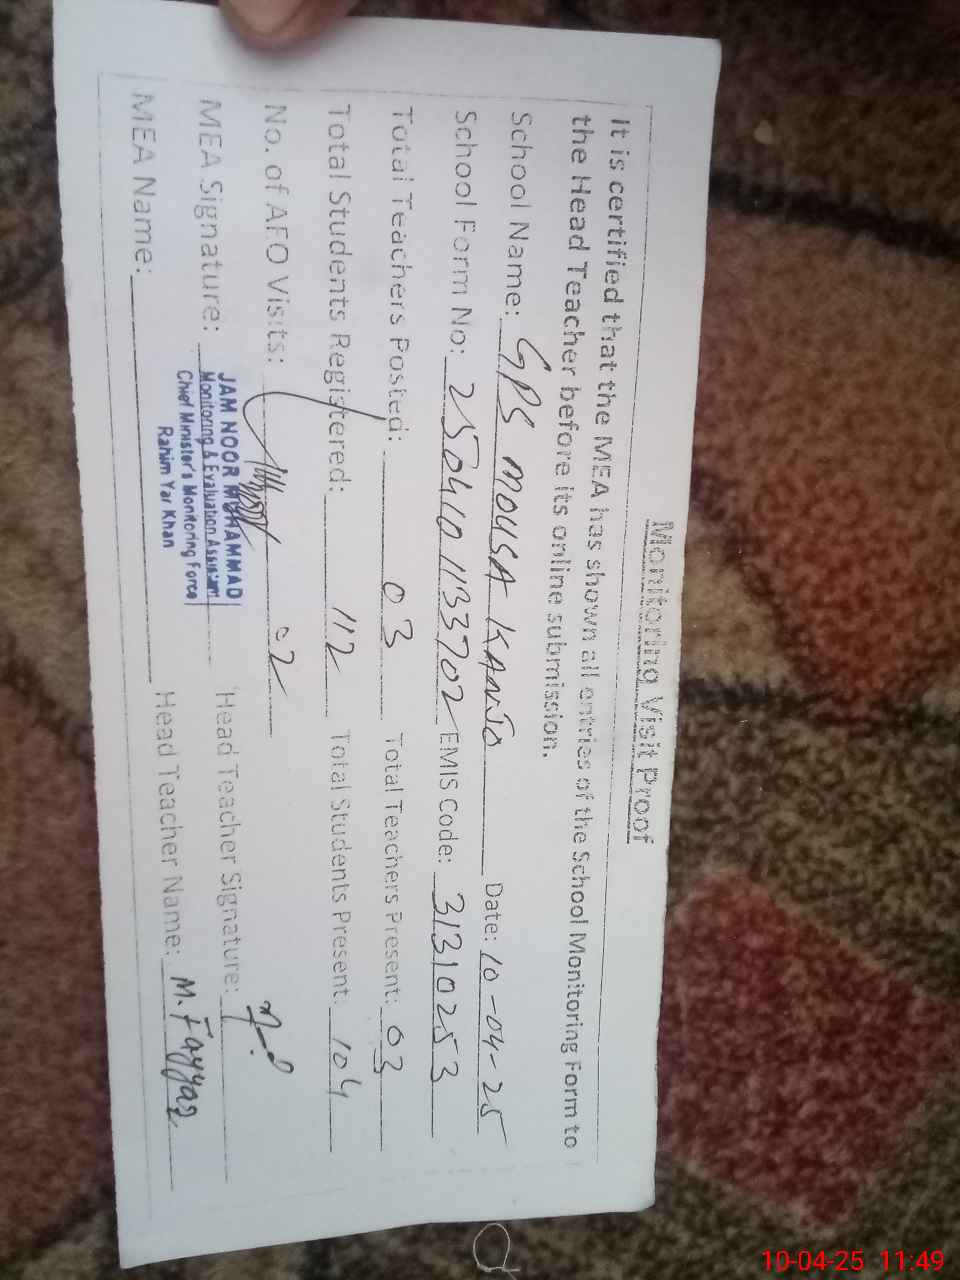 Monitoring Visit Proof
It is certified that the MEA has shown all entries of the School Monitoring Form to
the Head Teacher before its online submission.
School Name: GPS MOUSA KANJO Date: 10-04-25
School Form No: 2504101133702 EMIS Code: 31310253
Total Teachers Posted: 03 Total Teachers Present: 03
Total Students Registered: 112 Total Students Present: 104
No. of AFO Visits: 02
MEA Signature: Head Teacher Signature:
JAM NOOR MUHAMMAD
Monitoring & Evaluation Assistant
Chief Minister's Monitoring Force
Rahim Yar Khan
MEA Name: Head Teacher Name: M. Fayyaz
10-04-25 11:49